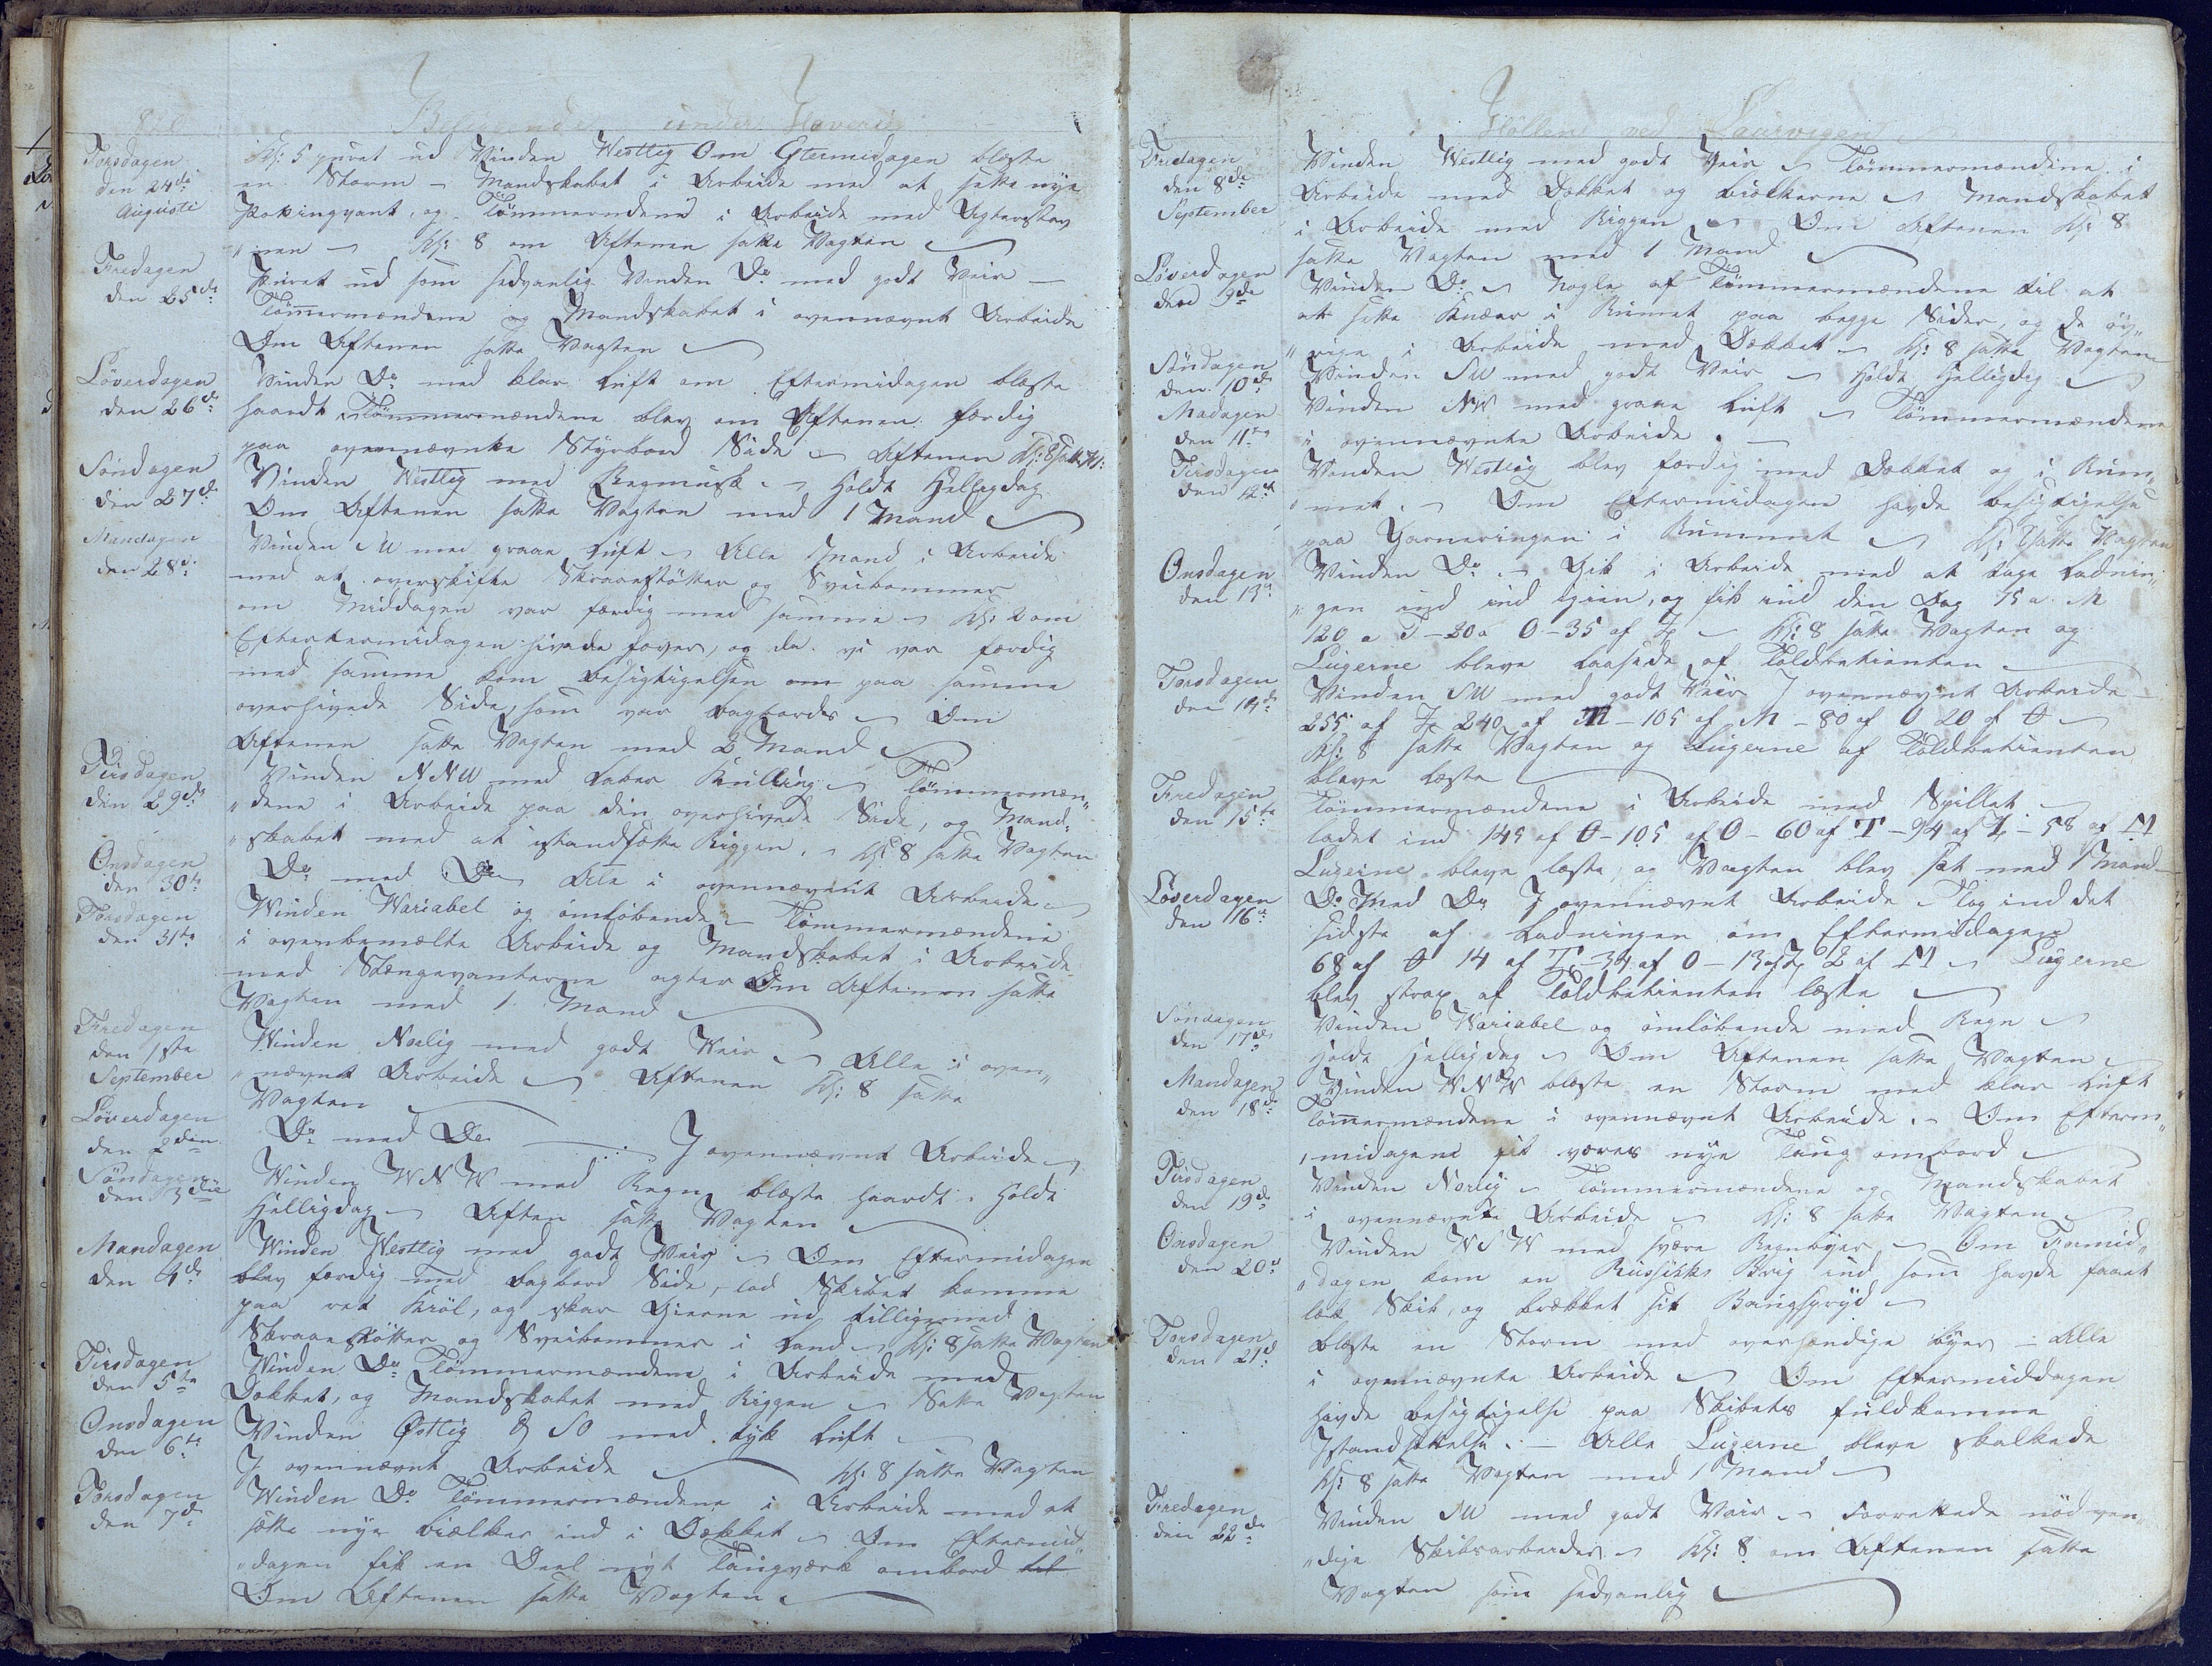 Befindende under Haveri
Torsdagen
den 24de
Augusti
Kl: 5 purret ud Vinden Westlig Om Eftermidagen blæste
en Storm – Mandskabet i Arbeide med at sætte nye
og Tømmermdene i Arbeide med Agterstav
"nen – Kl: 8 om Aftenen satte Vagten
Fredagen
den 25de
Purret ud som sedvanlig Vinden Do med godt Veir –
Tømermændene og Mandskabet i ovennævnt Arbeide
Om Aftenen satte Vagten
Løverdagen
den 26de
Vinden Do med klar Luft om Eftermidagen blæste
haardt Tømmermændene blev om Aftenen færdig
paa ovennævnte Styrbord Side – Aftenen Kl: 8 satte W:
Søndagen
den 27de
Vinden Westlig med Regmusk – Holdt Helligdag
Om Aftenen satte Vagten med 1 Mand
Mandagen
den 28de
Vinden SW med graae Luft – Alle Mand i Arbeide
med at overskifte Skraastøtter og Sveibommer
om Middagen var færdig med samme – Kl: 2 om
Eftertermidagen hivede over, og da vi var færdig
med samme kom Besigtigelsen om paa samme
overhivede Side, som var Bagbords – Om
Aftenen satte Vagten med 2 Mand
Tirsdagen
den 29de
Vinden NNW med laber Kulling – Tømmermæn"
"dene i Arbeide paa den overhivede Side, og Mand"
"skabet med at istandsætte Riggen. – Kl: 8 satte Vagten
Onsdagen
den 30te
Do med Do Alle i ovennævnt Arbeide
Torsdagen
den 31te
Winden Wariabel og omløbende – Tømmermændene
i ovenbemelte Arbeide og Mandskabet i Arbeide
med Stængevanterne agter Om Aftenen satte
Vagten med 1 Mand
Fredagen
den 1ste
September
Winden Norlig med godt Veir – Alle i oven"
"nævnt Arbeide – Aftenen Kl: 8 satte
Vagten
Løverdagen
den 2den
Do med Do – I ovennævnt Arbeide
Søndagen
den 3die
Winden WNW med Regn blæste haardt. Holdt
Helligdag – Aften satte Vagten
Mandagen
den 4de
Winden Westlig med godt Veir – Om Eftermidagen
blev færdig med Bagbord Side, lod Skibet komme
paa ret Kiøl, og skar Gierne ud tilligemed
Skraastøtter og Sveibommer i Land – Kl: 8 satte Vagten
Tirsdagen
den 5te
Winden Do Tømmermændene i Arbeide med
Dækket, og Mandskabet med Riggen – Satte Vagten
Onsdagen
den 6te
Vinden Østlig & SO med tyk Luft
I ovennævnt Arbeide – Kl: 8 satte Vagten
Torsdagen
den 7de
Winden Do Tømmermændene i Arbeide med at
sætte nye Biælker ind i Dækket – Om Eftermid"
"dagen fik en Deel nyt Taugværk ombord
Om Aftenen satte Vagten
Hollen ved Laurvigen
Fredagen
den 8de
September
Vinden Westlig med godt Veir – Tømmermændene i
Arbeide med Dækket og Biælkerne – Mandskabet
i Arbeide med Riggen – Om Aftenen Kl: 8
satte Vagten med 1 Mand
Løverdagen
den 9de
Vinden Do – Nogle af Tømmermændene til at
at sætte Knæer i Rumet paa begge Sider, og de øv"
"rige i Arbeide med Dækket – Kl: 8 satte Vagten
Søndagen
den 10de
Vinden SW med godt Veir – Holdt Helligdag
Madagen
den 11te
Vinden NW med graae Luft – Tømmermændene
i ovennævnte Arbeide. –
Tirsdagen
den 12te
Vinden Westlig blev færdig med Dækket og i Rum"
"met. – Om Eftermidagen havde Besigtigelse
paa Garneringen i Rummet – Kl: 8 satte Vagten
Onsdagen
den 13de
Vinden Do – Gik i Arbeide med at tage Ladnin"
"gen ind ind igien, og fik ind den Dag 15 a M
120 a T – 20 a O – 35 af – Kl: 8 satte Vagten og
Lugerne bleve laasede af Toldbetienten
Torsdagen
den 14de
Vinden SW med godt Veir I ovennævnt Arbeide –
255 af 240 af M – 105 af M – 80 af O 20 af O –
Kl: 8 satte Vagten og Lugerne af Toldbetienten
bleve læste
Fredagen
den 15te
Tømmermændene i Arbeide med Spillet –
ladet ind 145 af O – 105 af O – 60 af T – 94 af – 58 af M
Lugerne bleve læste, og Vagten blev sat med 1 Mand –
Løverdagen
den 16de
Do Med Do I ovennævnt Arbeide – Tog ind det
sidste af Ladningen om Eftermidagen
68 af O 14 af T – 34 af O – 13 af 2 af M – Lugerne
blev strax af Toldbetienten læste
Søndagen
den 17de
Vinden Wariabel og omløbende med Regn –
Holdt Helligdag – Om Aftenen satte Vagten
Mandagen
den 18de
Vinden WNW blæste en Storm med klar Luft
Tømermændene i ovennævnt Arbeide. – Om Efterm"
"midagene fik vores nye Taug ombord
Tirsdagen
den 19de
Vinden Norlig – Tømmermændene og Mandskabet
i ovennævnte Arbeide – Kl: 8 satte Vagten
Onsdagen
den 20de
Vinden WSW med svære Regnbyer – Om Formid"
"dagen kom en Russiskt Brig ind som havde faaet
læk Skib, og brækket sit Baugspryd –
Torsdagen
den 21de
Blæste en Storm med overhændige Byer – Alle
i ovennævnte Arbeide – Om Eftermiddagen
havde Besigtigelse paa Skibets fuldkomne
Istandsættelse. – Alle Lugerne bleve skalkede
Kl: 8 satte Vagten med 1 Mand
Fredagen
den 22de
Vinden SW med godt Veir – Forrettede nødven"
"dige Skibsarbeider – Kl: 8 om Aftenen satte
Vagten som sedvanlig